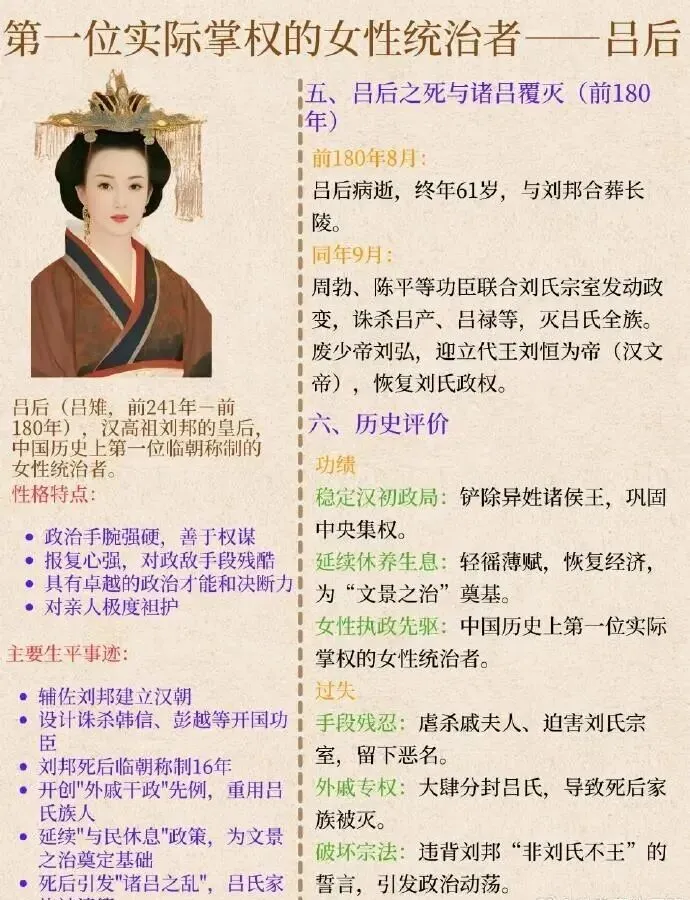 第一位实际掌权的女性统治者——吕后
吕后（吕雉，前241年－前
180年），汉高祖刘邦的皇后，
中国历史上第一位临朝称制的
女性统治者。
性格特点：
• 政治手腕强硬，善于权谋
• 报复心强，对政敌手段残酷
• 具有卓越的政治才能和决断力
• 对亲人极度袒护
主要生平事迹：
• 辅佐刘邦建立汉朝
• 设计诛杀韩信、彭越等开国功
臣
• 刘邦死后临朝称制16年
• 开创"外戚干政"先例，重用吕
氏族人
• 延续"与民休息"政策，为文景
之治奠定基础
• 死后引发"诸吕之乱"，吕氏家
五、吕后之死与诸吕覆灭（前180
年）
前180年8月：
吕后病逝，终年61岁，与刘邦合葬长
陵。
同年9月：
周勃、陈平等功臣联合刘氏宗室发动政
变，诛杀吕产、吕禄等，灭吕氏全族。
废少帝刘弘，迎立代王刘恒为帝（汉文
帝），恢复刘氏政权。
六、历史评价
功绩
稳定汉初政局：铲除异姓诸侯王，巩固
中央集权。
延续休养生息：轻徭薄赋，恢复经济，
为“文景之治”奠基。
女性执政先驱：中国历史上第一位实际
掌权的女性统治者。
过失
手段残忍：虐杀戚夫人、迫害刘氏宗
室，留下恶名。
外戚专权：大肆分封吕氏，导致死后家
族被灭。
破坏宗法：违背刘邦“非刘氏不王”的
誓言，引发政治动荡。